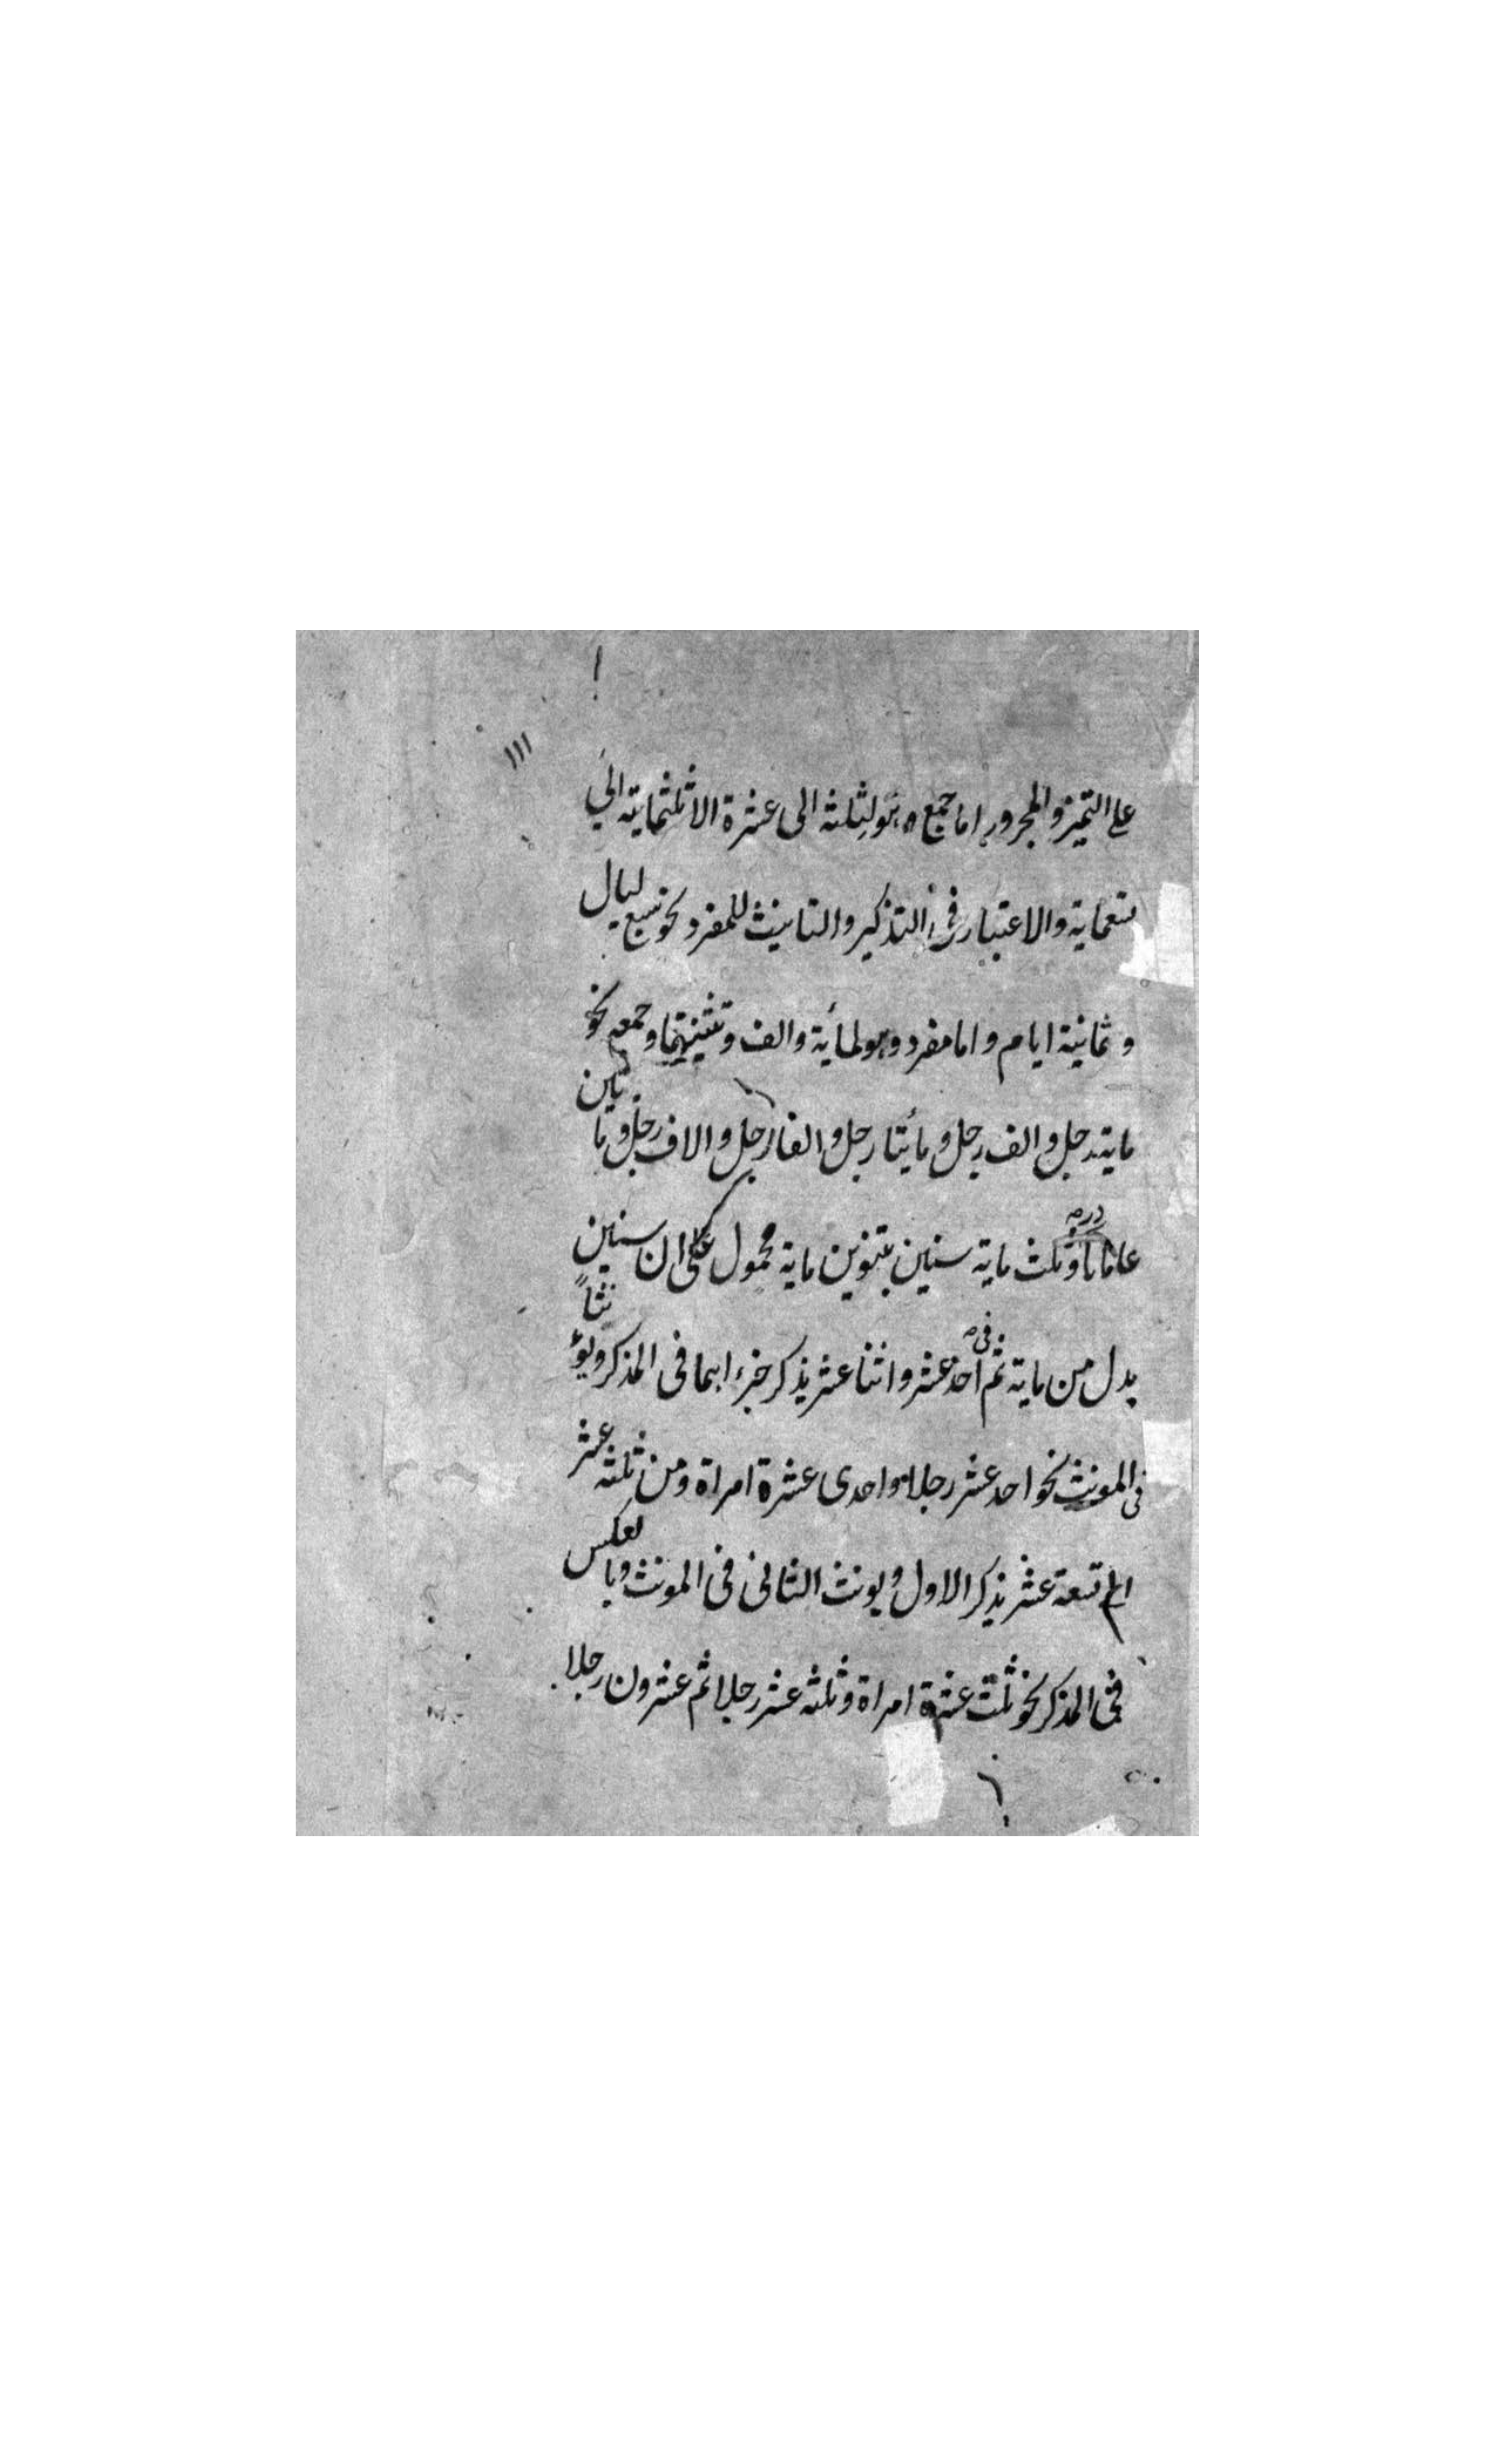 ١١١
على التميز والمجرور اما جمع وهو لثلثة الى عشرة الا ثلثماية الى
تسعماية والاعتبار فى التذكير والتانيث للمفرد نحو سبع ليال
وثمانية ايام واما مفرد وهو لمائة والف وتثنيتهما وجمعه نحو
ماية رجل والف رجل ومائتا رجل والفا رجل والاف رجل ومايتين
عاما وثلث ماية سنين بتنوين ماية محمول على ان سنين
بدل من ماية ثم فى احد عشر واثنا عشر يذكر جزء ابهما فى المذكر ويؤنثا
فى المونث نحو احد عشر رجلا واحدى عشرة امراة ومن ثلثة عشر
الى تسعة عشر يذكر الاول ويونث الثانى فى المونث وبالعكس
فى المذكر نحو ثلث عشرة امراة وثلثة عشر رجلا ثم عشرون رجلا